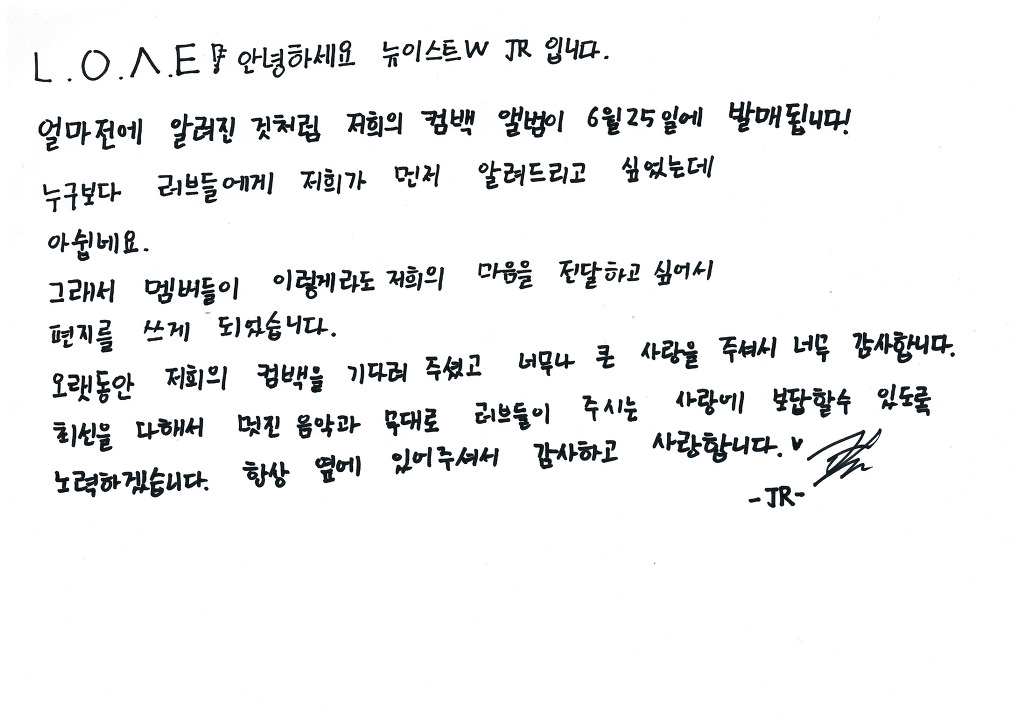 L.O.Λ.E 안녕하세요 뉴이스트W JR 입니다.
얼마전에 알려진 것처럼 저희의 컴백 앨범이 6월25일에 발매됩니다!
누구보다 러브들에게 저희가 먼저 알려드리고 싶었는데
아쉽네요.
그래서 멤버들이 이렇게라도 저희의 마음을 전달하고 싶어서
편지를 쓰게 되었습니다.
오랫동안 저희의 컴백을 기다려 주셨고 너무나 큰 사랑을 주셔서 너무 감사합니다.
최선을 다해서 멋진 음악과 무대로 러브들이 주시는 사랑에 보답할수 있도록
노력하겠습니다. 항상 옆에 있어주셔서 감사하고 사랑합니다.♥
-JR-